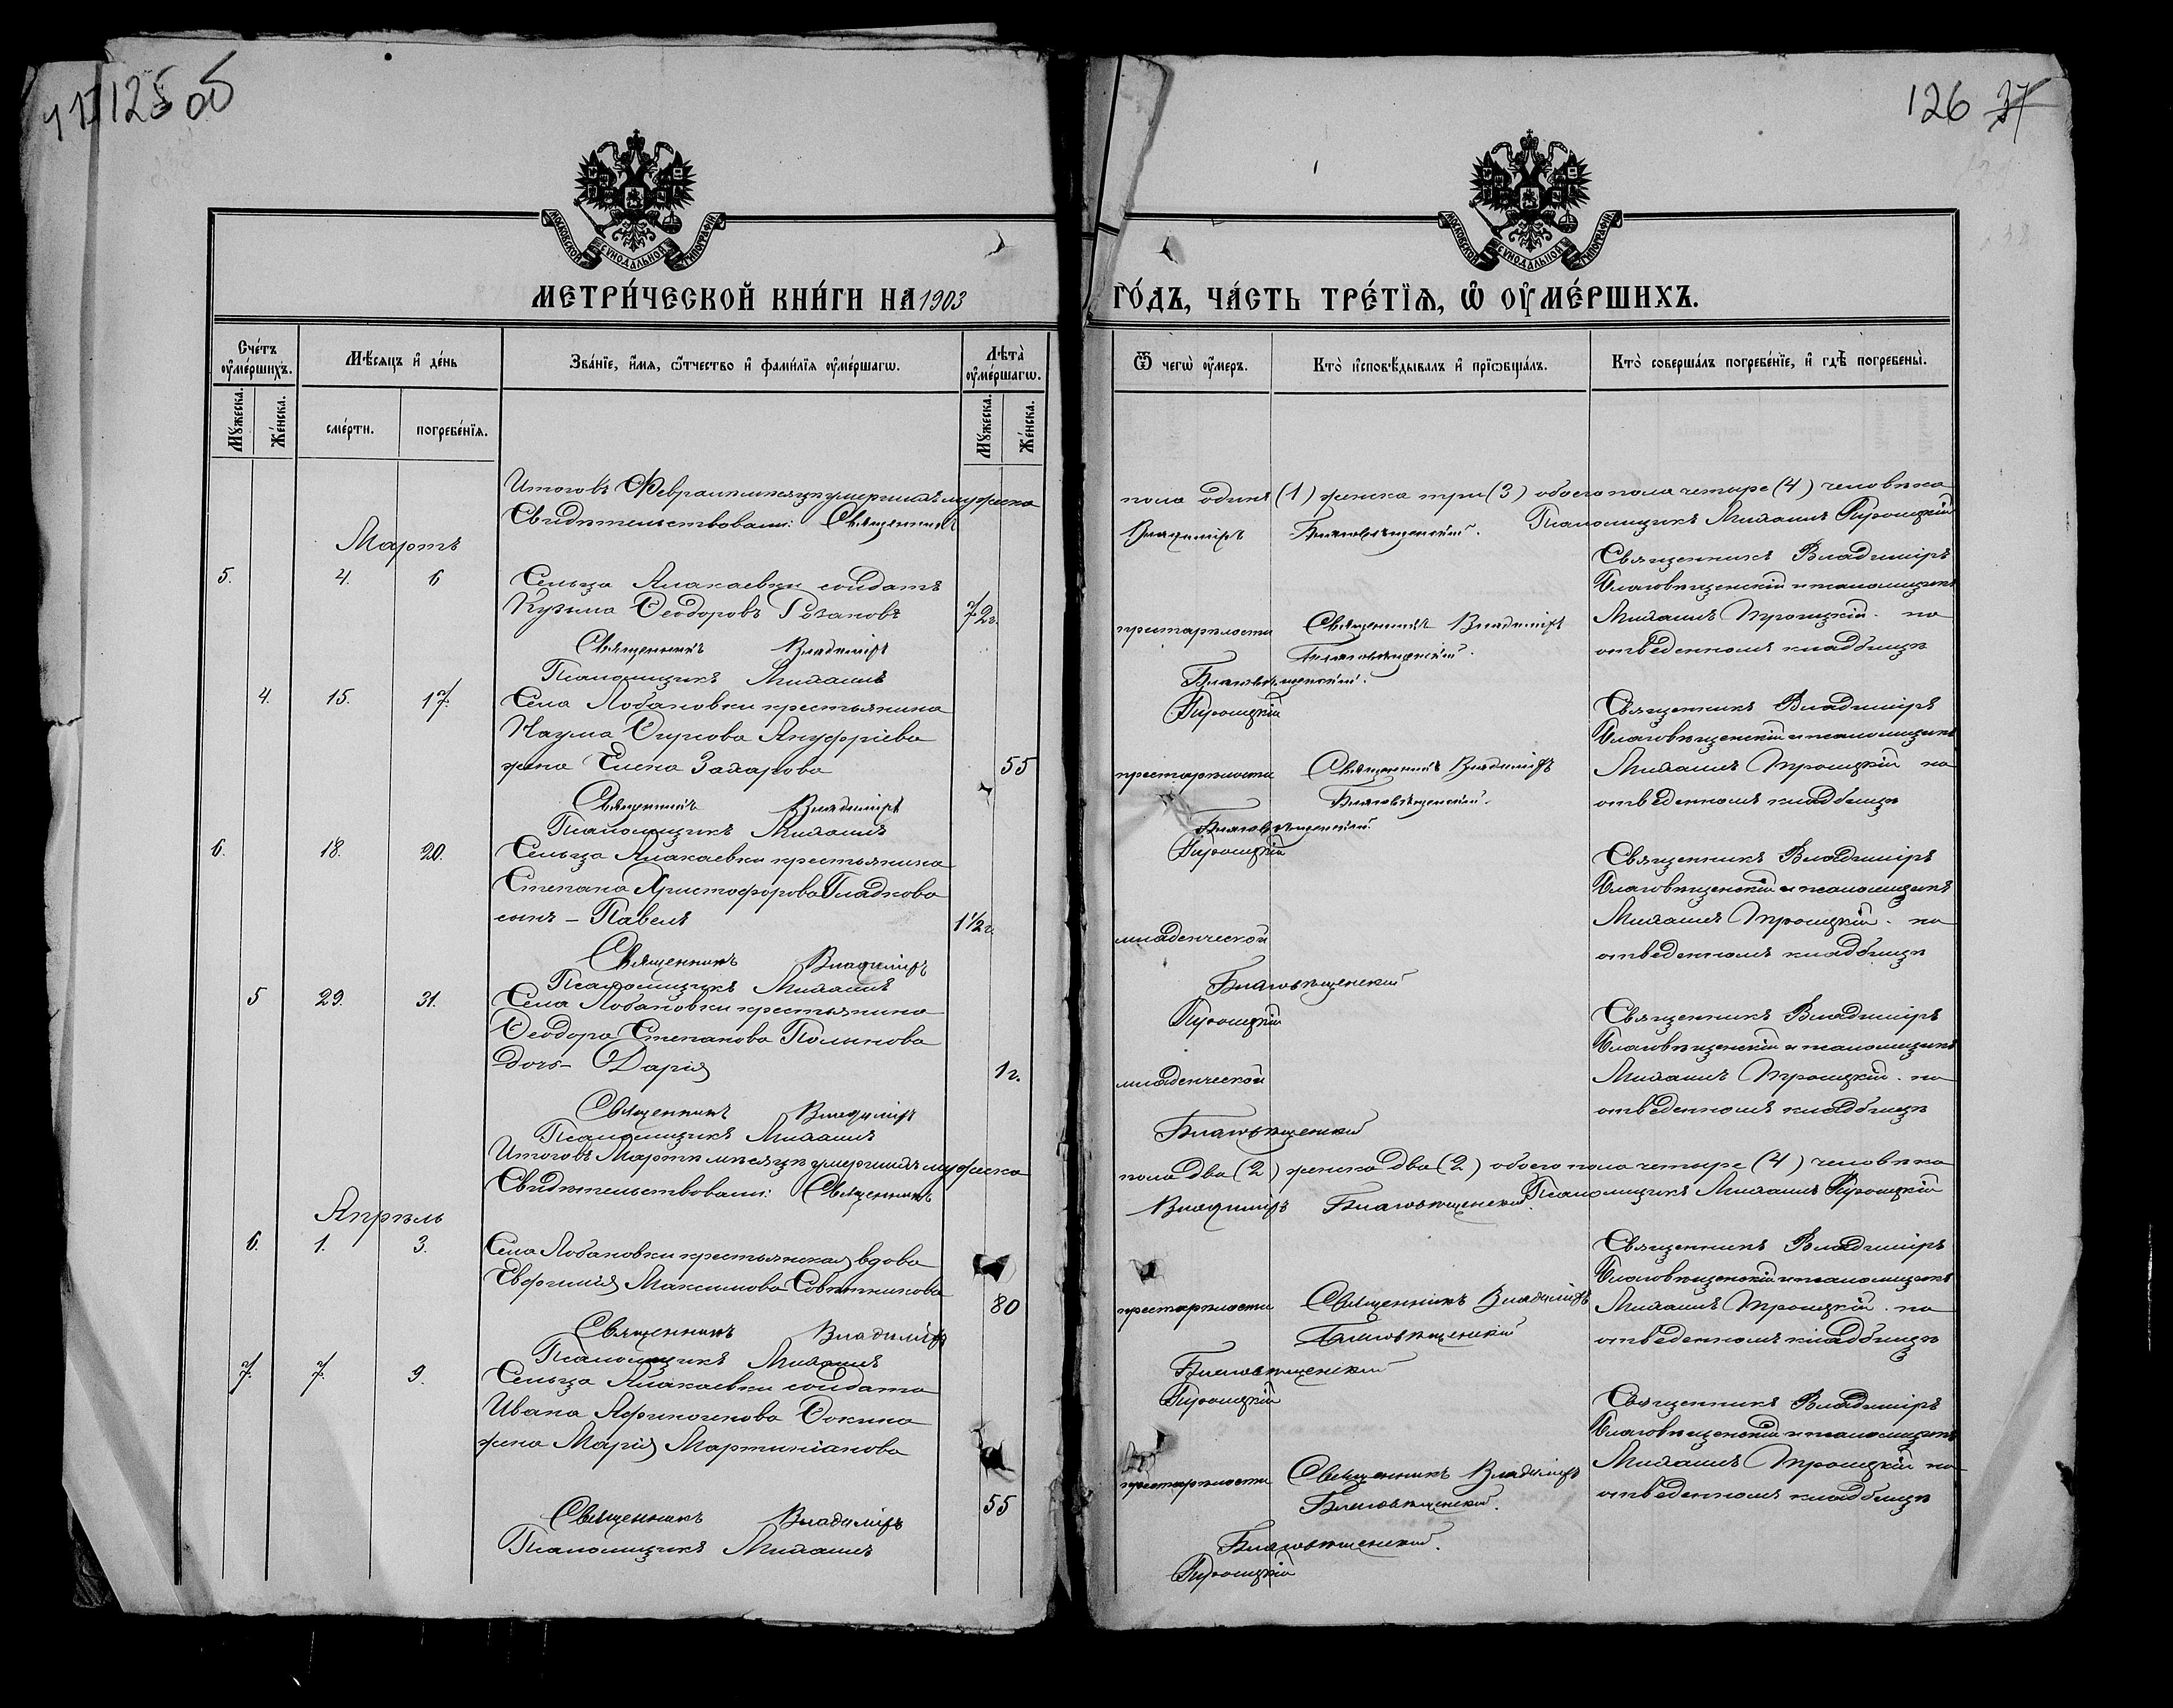 125 об
126 37
МОСКОВСКОЙ СѴНОДАЛЬНОЙ ТИПОГРАФІИ
МОСКОВСКОЙ СѴНОДАЛЬНОЙ ТИПОГРАФІИ
МЕТРИ́ЧЕСКОЙ КНИ́ГИ НА 1903 ГО́ДЪ, ЧА́СТЬ ТРЕ́ТІѦ, Ѡ҆ ОУ҆МЕ́РШИХЪ.
Сче́тъ оу҆ме́ршихъ.
Мѣ́сѧцъ и҆ де́нь
Зва́нїе, и҆́мѧ, ѻ҆́тчество и҆ фами́лїѧ оу҆ме́ршагѡ.
Лѣта̀ оу҆ме́ршагѡ.
Ѿ чегѡ̀ оу҆́меръ.
Кто̀ и҆сповѣ́дывалъ и҆ прїѡбща́лъ.
Кто̀ соверша́лъ погребе́нїе, и҆ гдѣ̀ погребены̀.
Мꙋ́жеска.
Же́нска.
сме́рти.
погребе́нїѧ.
Мꙋ́жеска.
Же́нска.
Итого въ Февралѣ мѣсяцѣ умершихъ мужеска пола одинъ (1) женска три (3) обоего пола четыре (4) человѣка
Свидѣтельствовали: Священникъ Владиміръ Благовѣщенскій. Псаломщикъ Михаилъ Троицкій
Мартъ
5. 4. 6
Сельца Алакаевки солдатъ
Кузьма Ѳеодоровъ Рѣзановъ
72 г.
престарѣлости
Священникъ Владиміръ
Благовѣщенскій.
Священникъ Владиміръ
Благовѣщенскій и псаломщикъ
Михаилъ Троицкій на
отведенномъ кладбищѣ
Священникъ Владиміръ Благовѣщенскій.
Псаломщикъ Михаилъ Троицкій
4. 15. 17.
Села Лобановки крестьянина
Наума Ануфріева
жена Елена Захарова
55
престарѣлости
Священникъ Владиміръ
Благовѣщенскій.
Священникъ Владиміръ
Благовѣщенскій и псаломщикъ
Михаилъ Троицкій на
отведенномъ кладбищѣ
Священникъ Владиміръ Благовѣщенскій.
Псаломщикъ Михаилъ Троицкій
6. 18. 20.
Сельца Алакаевки крестьянина
Степана Христофорова Гладкова
сынъ – Павелъ
1½ г.
младенческой
Священникъ Владиміръ
Благовѣщенскій и псаломщикъ
Михаилъ Троицкій на
отведенномъ кладбищѣ
Священникъ Владиміръ Благовѣщенскій
Псаломщикъ Михаилъ Троицкій
5 29. 31.
Села Лобановки крестьянина
Ѳеодора Степанова Полынова
дочь – Дарія
1 г.
младенческой
Священникъ Владиміръ
Благовѣщенскій и псаломщикъ
Михаилъ Троицкій на
отведенномъ кладбищѣ
Священникъ Владиміръ Благовѣщенскій
Псаломщикъ Михаилъ
Итого въ Мартѣ мѣсяцѣ умершихъ мужеска пола два (2) женска два (2) обоего пола четыре (4) человѣка
Свидѣтельствовали: Священникъ Владиміръ Благовѣщенскій. Псаломщикъ Михаилъ Троицкій
Апрѣль
6. 1. 3.
Села Лобановки крестьянская вдова
Евфимія Максимова Совѣтникова
80
престарѣлости
Священникъ Владиміръ
Благовѣщенскій
Священникъ Владиміръ
Благовѣщенскій и псаломщикъ
Михаилъ Троицкій на
отведенномъ кладбищѣ
Священникъ Владиміръ Благовѣщенскій
Псаломщикъ Михаилъ Троицкій
7. 7. 9.
Сельца Алакаевки солдата
Ивана Афиногенова Ѳокина
жена Марія Мартиніанова
55
престарѣлости
Священникъ Владиміръ
Благовѣщенскій.
Священникъ Владиміръ
Благовѣщенскій и псаломщикъ
Михаилъ Троицкій на
отведенномъ кладбищѣ
Священникъ Владиміръ Благовѣщенскій.
Псаломщикъ Михаилъ Троицкій